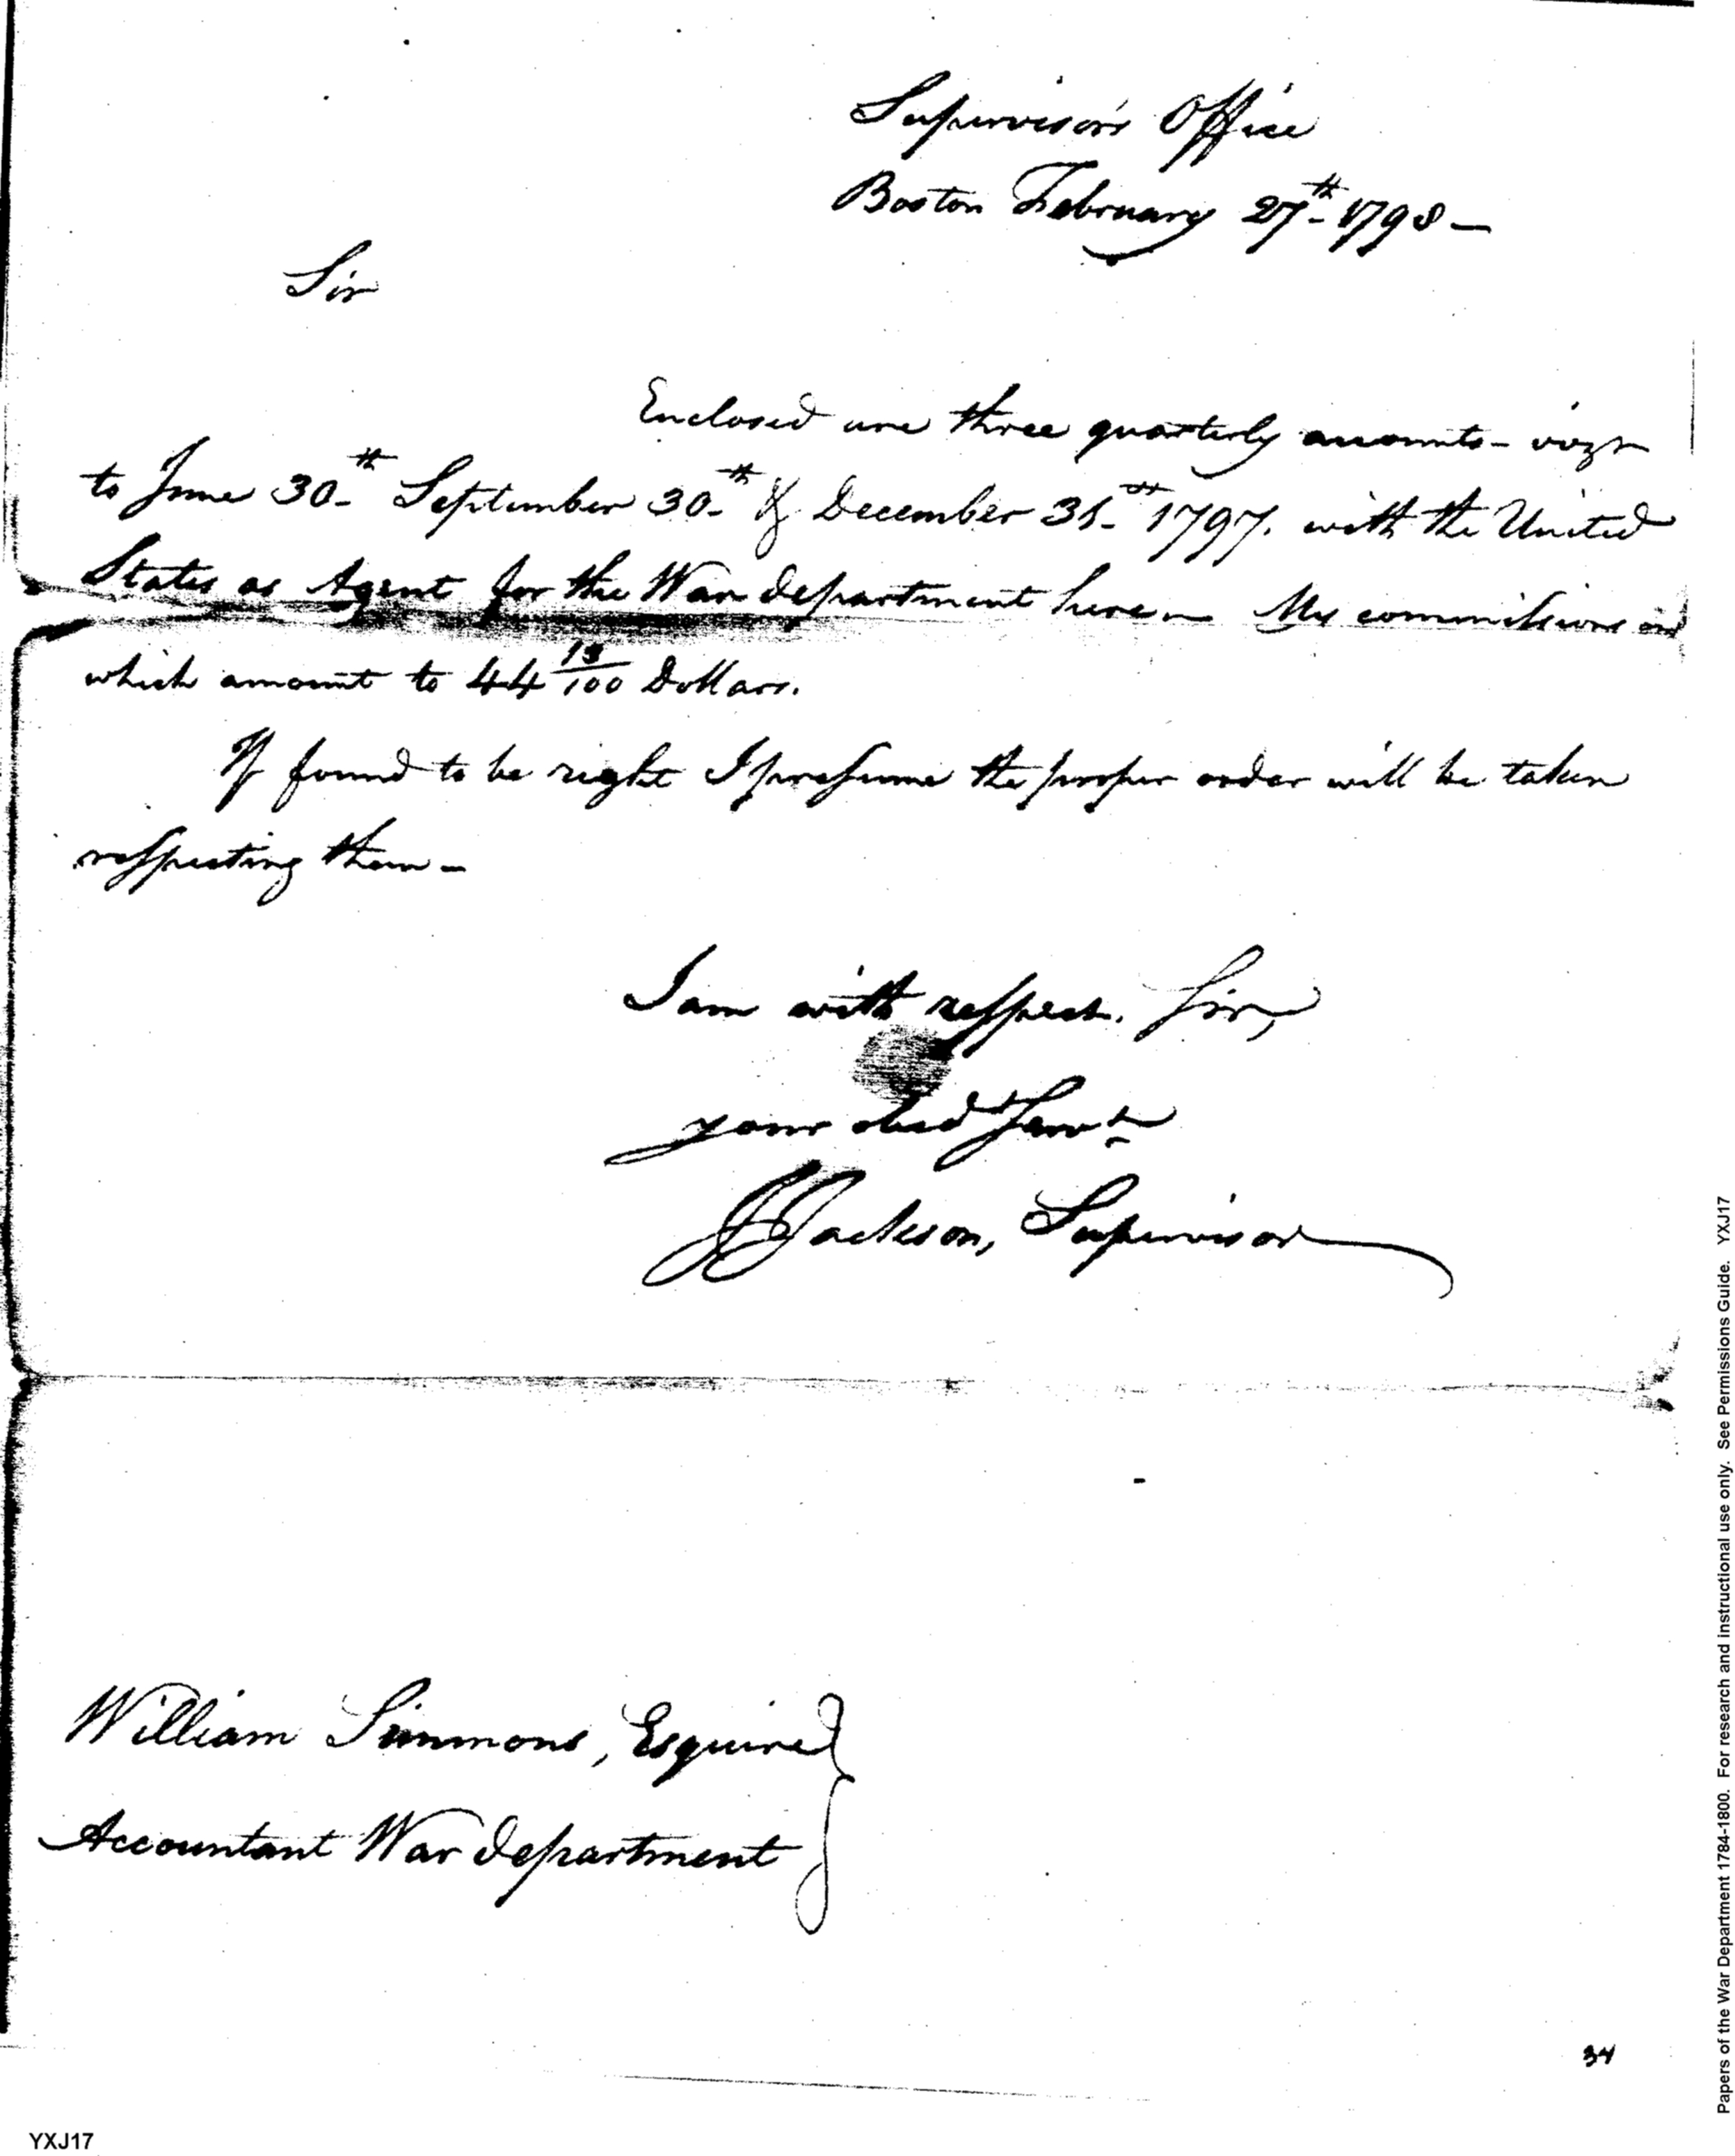 Supervisor's Office
Boston February 27th 1798 —
Sir
Enclosed are three quarterly accounts - vizt
to June 30th September 30th & December 31st 1797. with the United
States as Agent for the War department here — My commissions on
which amount to 44 /100 Dollars.
If found to be right I presume the proper order will be taken
respecting them -
I am with respect, Sir,
your obed Servt
J Jackson, Supervisor
William Simmons, Esquire
Accountant War department
34
YXJ17
Papers of the War Department 1784-1800. For research and instructional use only. See Permissions Guide. YXJ17